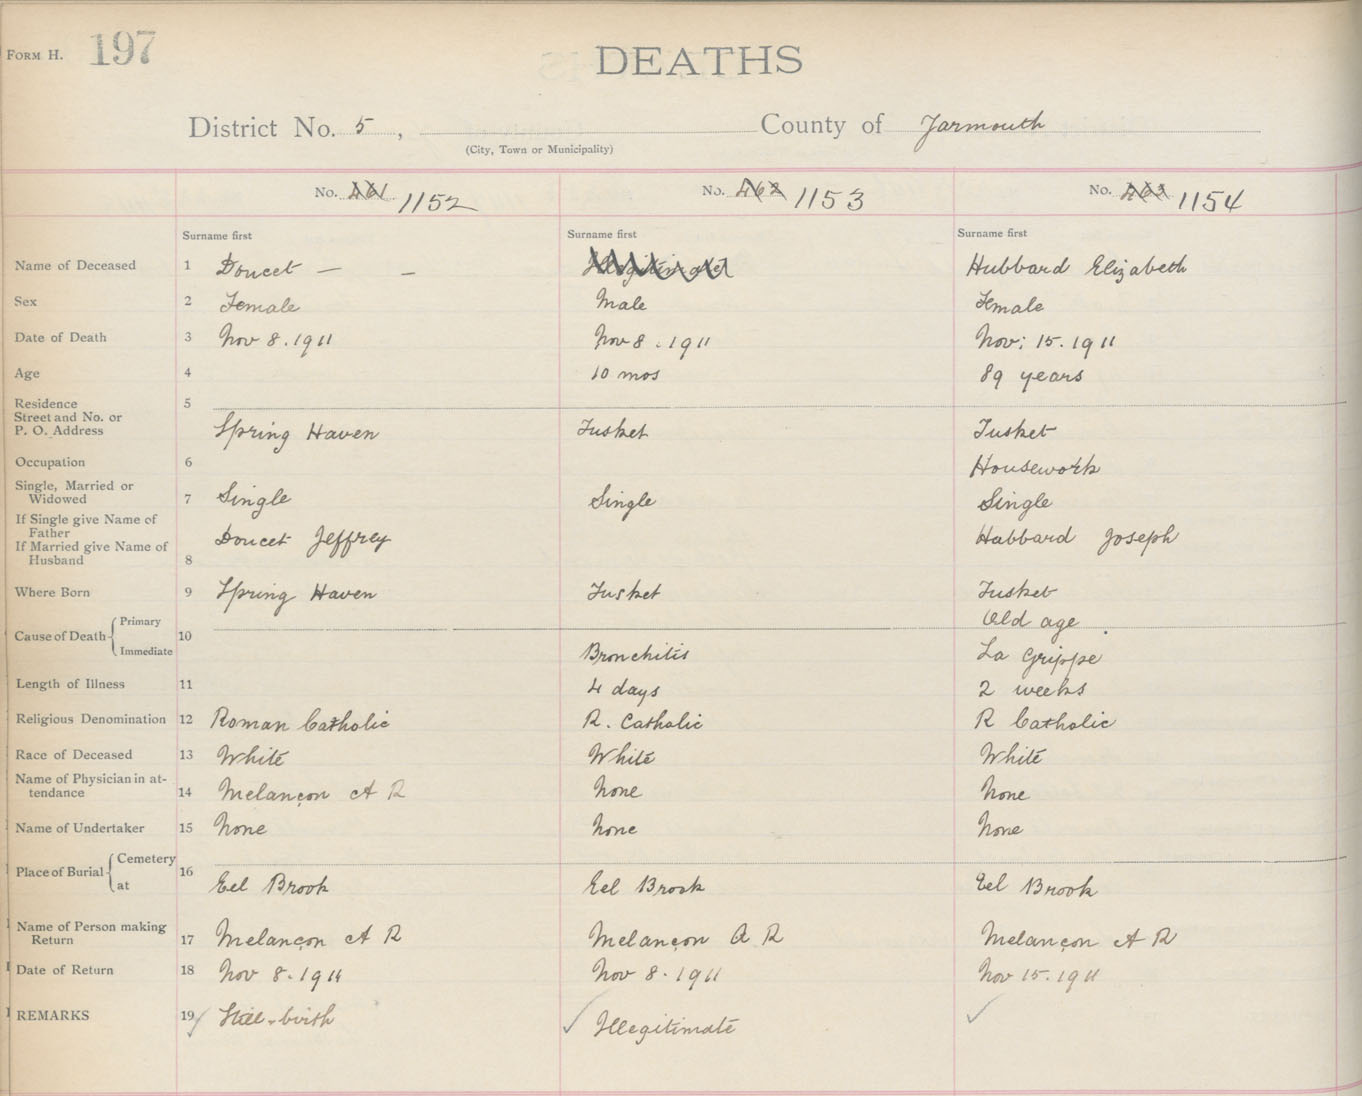 FORM H. 197
DEATHS
District No. 5, County of Yarmouth
(City, Town or Municipality)
No. 461 1152 No. 462 1153 No. 463 1154
Surname first Surname first Surname first
Name of Deceased 1 Doucet — — Illegitimate Hubbard Elizabeth
Sex 2 Female Male Female
Date of Death 3 Nov 8. 1911 Nov 8. 1911 Nov: 15. 1911
Age 4 10 mos 89 years
Residence 5
Street and No. or
P. O. Address Spring Haven Tusket Tusket
Occupation 6 Housework
Single, Married or
Widowed 7 Single Single Single
If Single give Name of
Father
Doucet Jeffrey Habbard Joseph
If Married give Name of
Husband 8
Where Born 9 Spring Haven Tusket Tusket
Cause of Death Primary 10 Old age
Immediate Bronchitis La Grippe
Length of Illness 11 4 days 2 weeks
Religious Denomination 12 Roman Catholic R. Catholic R Catholic
Race of Deceased 13 White White White
Name of Physician in at-
tendance 14 Melançon A R None None
Name of Undertaker 15 None None None
Place of Burial Cemetery 16
at Eel Brook Eel Brook Eel Brook
Name of Person making
Return 17 Melançon A R Melançon A R Melançon A R
Date of Return 18 Nov 8. 1911 Nov 8. 1911 Nov 15. 1911
REMARKS 19 Still-birth Illegitimate